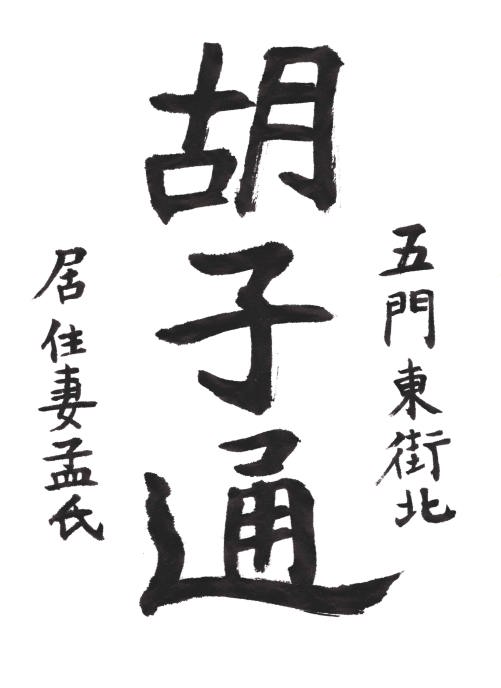 五門東街北
胡子通
居住妻孟氏